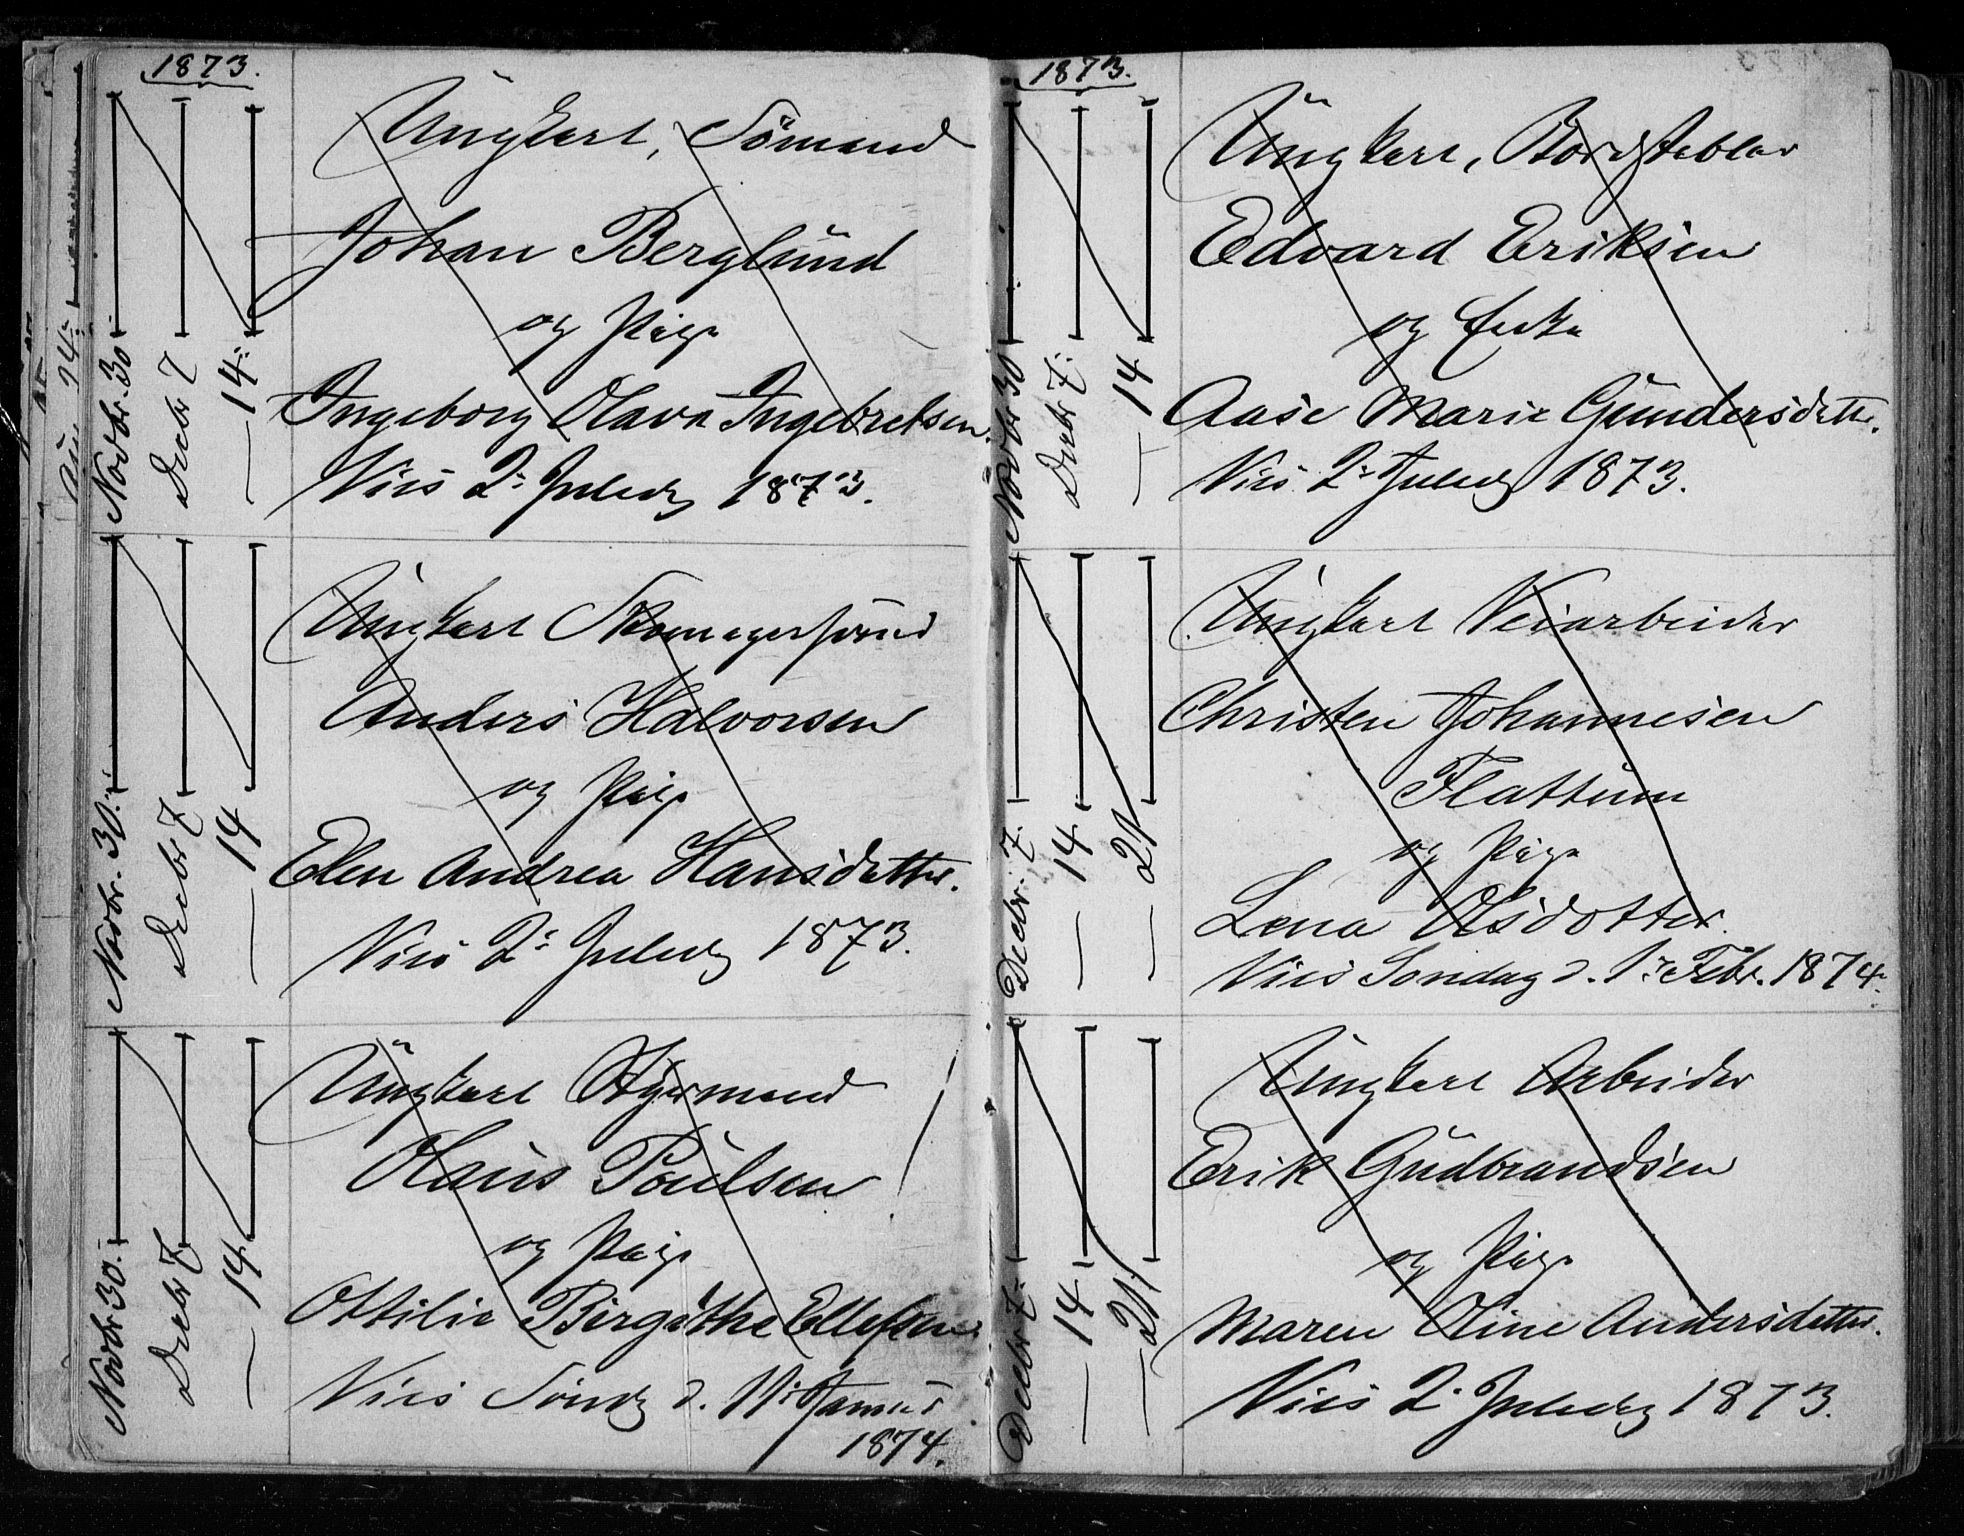 1873.
Novbr. 30
Decbr 7
— 14.
Ungkarl, Sømand
Johan Berglund
og Pige
Ingeborg Olava Ingebretsen.
Vies 2: Juledg 1873.
Novbr. 30.
Decbr 7
— 14
Ungkarl Skomagersvend
Anders Halvorsen
og Pige
Elen Andrea Hansdatter.
Vies 2: Juledg 1873.
Novbr 30.
Decbr 7.
— 14.
Ungkarl Styrmand
Olaus Poulsen
og Pige
Ottilie Birgithe Ellefsen
Vies Søndg d. 11: Januar
1874.
1873.
Novbr 30
Decbr 7:
— 14
Ungkarl, Bordstabler
Edvard Eriksen
og Enke
Aase Marie Gundersdatter.
Vies 2: Juledg 1873.
Decbr. 7.
— 14.
— 21.
Ungkarl Veiarbeider
Christen Johannesen
Flattum
og Pige
Lena Olsdotter.
Vies Søndag d. 1: Febr. 1874.
Decbr. 7.
— 14.
— 21.
Ungkarl Arbeider
Erik Gudbrandsen
og Pige
Maren Oline Andersdatter.
Vies 2. Juledg 1873.